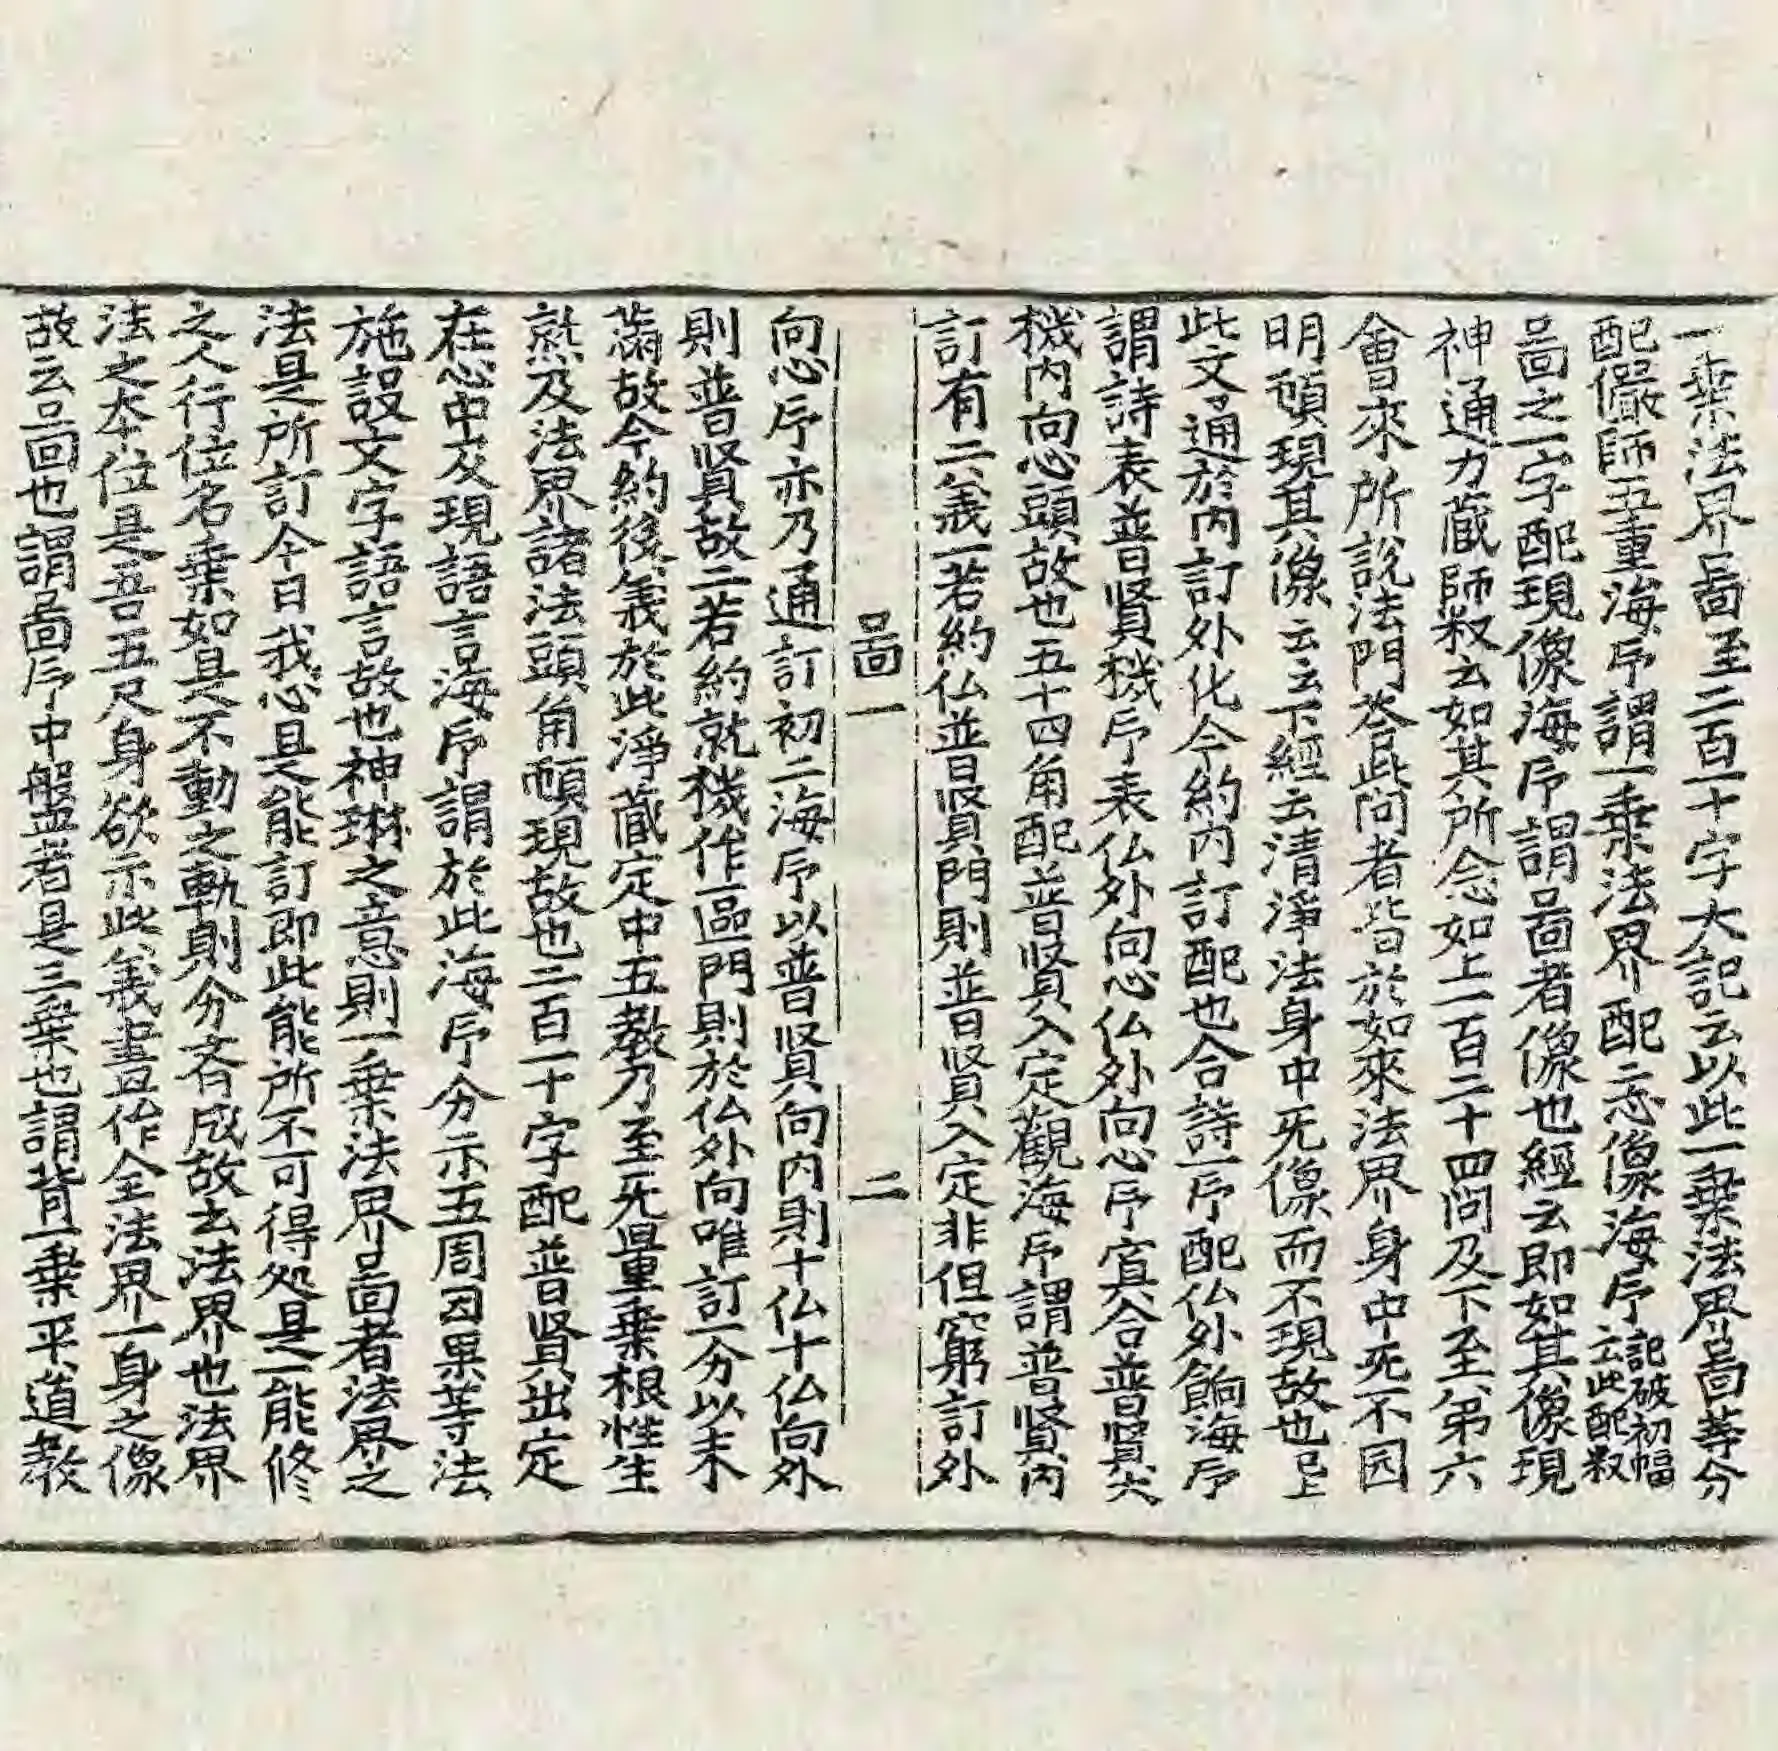 一乗法界啚至二百一十字大記云以此一乗法界啚等分
配儼師五重海印謂一乗法界配忘像海印記破初幅云此配釈
啚之一字配現像海印謂啚者像也經云即如其像現
神通力蔵師釈云如其所念如上一百二十四問及下至第六
會來所說法門荅此問者皆於如來法界身中旡不因
明頓現其像云云下經云清淨法身中旡像而不現故也已上
此文通於内訂外化今約内訂配也合詩一印配仏外餉海印
謂詩表普賢機印表仏外向心仏外向心印寘合普賢大
機内向心頭故也五十四角配普賢入定觀海印謂普賢内
訂有二義一若約仏普賢門則普賢入定非但窮訂外
啚一　二
向心印亦乃通訂初二海印以普賢向内則十仏十仏向外
則普賢故二若約就機作區門則於仏外向唯訂一分以未
滿故今約後義於此淨蔵定中五教乃至旡量乗根性生
熟及法界諸法頭角頓現故也二百一十字配普賢出定
在心中及現語言海印謂於此海印分示五周因果等法
施設文字語言故也神琳之意則一乗法界啚者法界之
法是所訂今日我心是能訂即此能所不可得処是一能修
之人行位名乗如是不動之軌則分齐成故去法界也法界
法之本位是吾五尺身欲示此義畫作全法界一身之像
故云啚也謂啚印中盤者是三乗也謂背一乗平道教